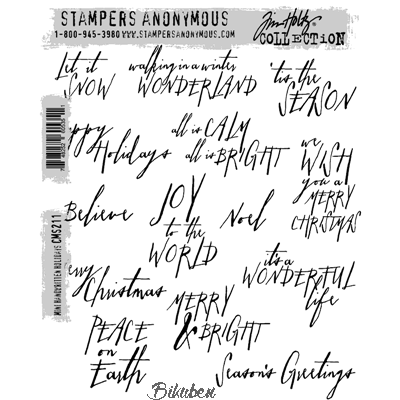 STAMPERS ANONYMOUS
1-800-945-3980 WWW.STAMPERSANONYMOUS.COM
Tim Holtz
COLLECTION
Let it
SNOW
walking in a winter
WONDERLAND
'tis the
SEASON
appy
Holidays
all is CALM
all is BRIGHT
we
WISH
you a
MERRY
CHRISTMAS
Believe
JOY
to the
WORLD
Noel
it's a
WONDERFUL
life
erry
Christmas
MERRY
& BRIGHT
PEACE
on
Earth
Season's Greetings
MINI HANDWRITTEN HOLIDAYS CMS211
Bikuben